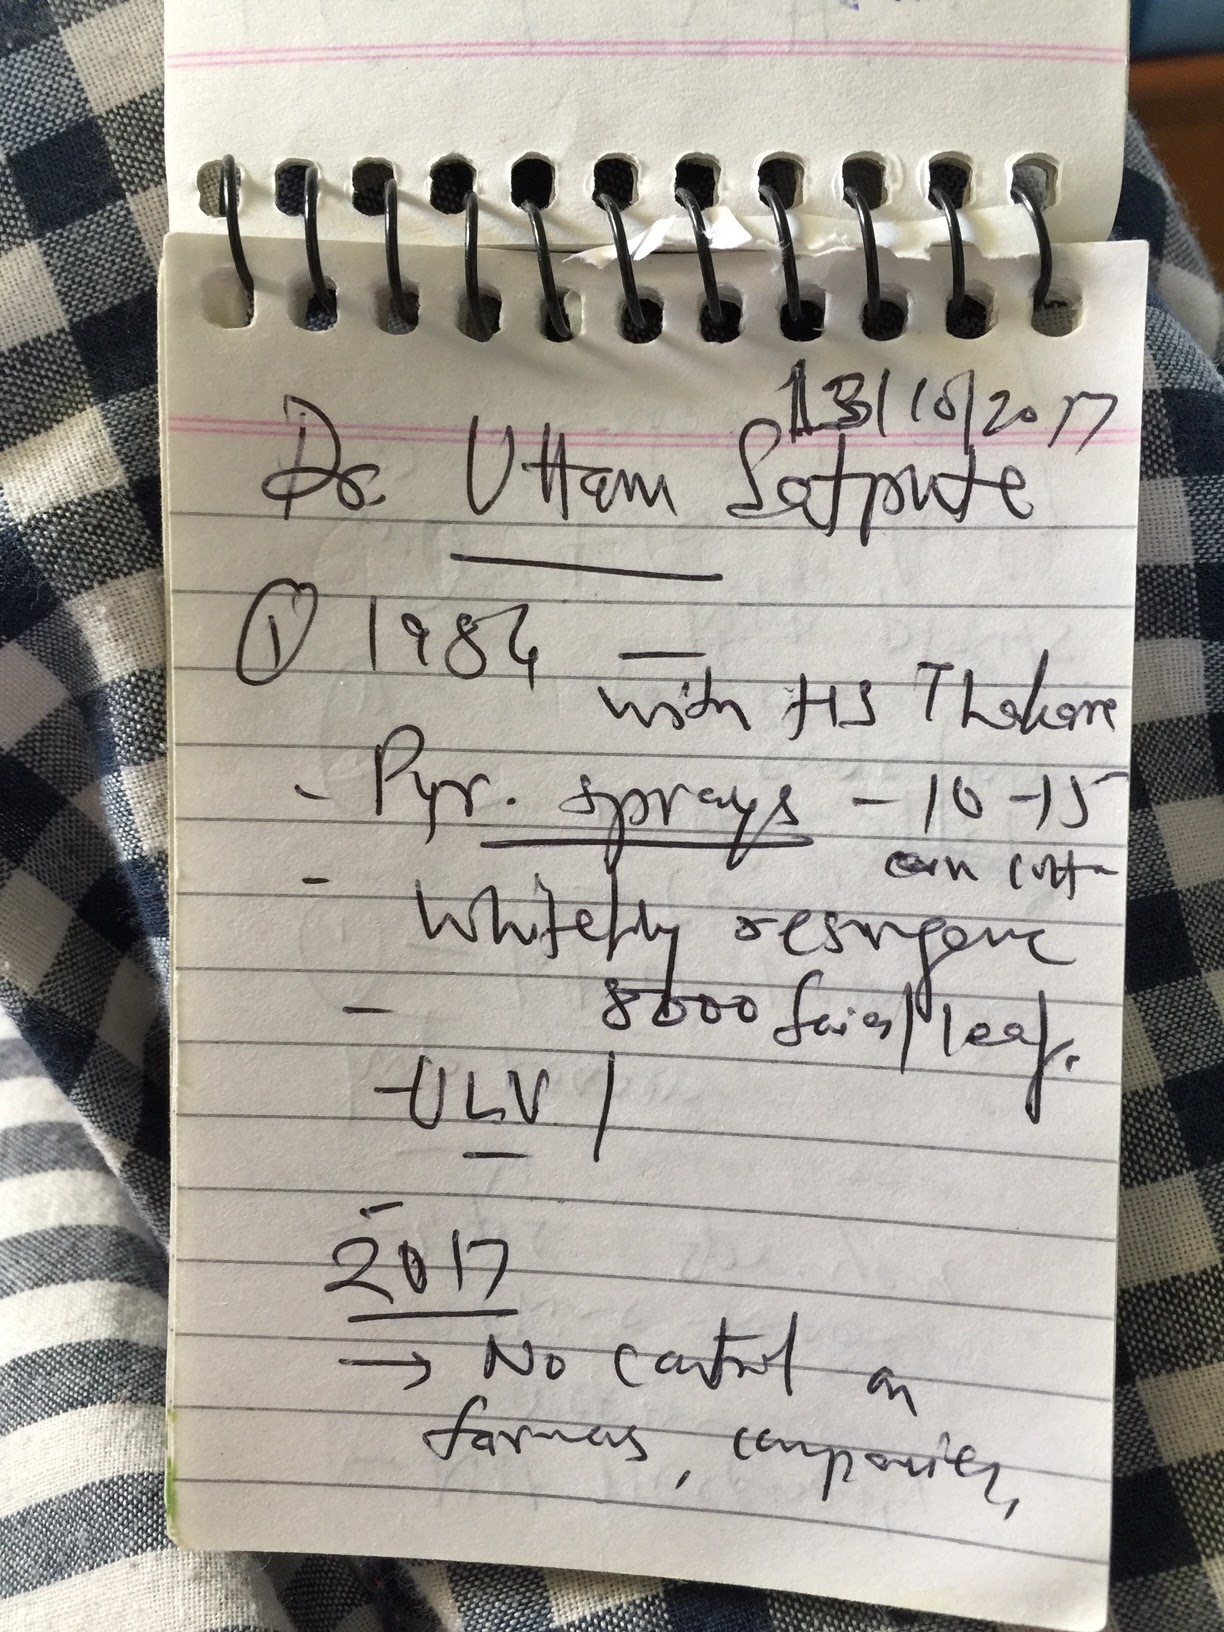 13/10/2017
Dr. Uttam Satpute
① 1984 —
with HS Thakare
- Pyr. sprays - 10-15
on cott
- Whitefly resurgence
- 8000 fairs/leaf.
- ULV /
-
2017
→ No control on
farmers, companies,